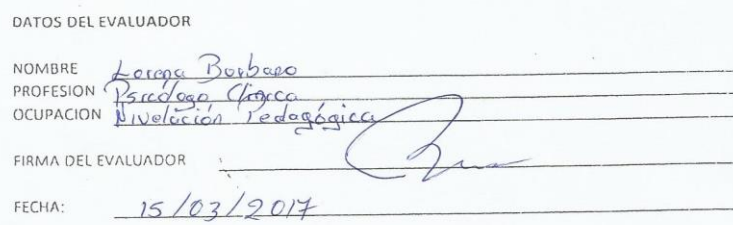 DATOS DEL EVALUADOR
NOMBRE Lorena Borbaro
PROFESION Psicólogo Clínica
OCUPACION Nivelación Pedagógica
FIRMA DEL EVALUADOR
FECHA: 15/03/2017